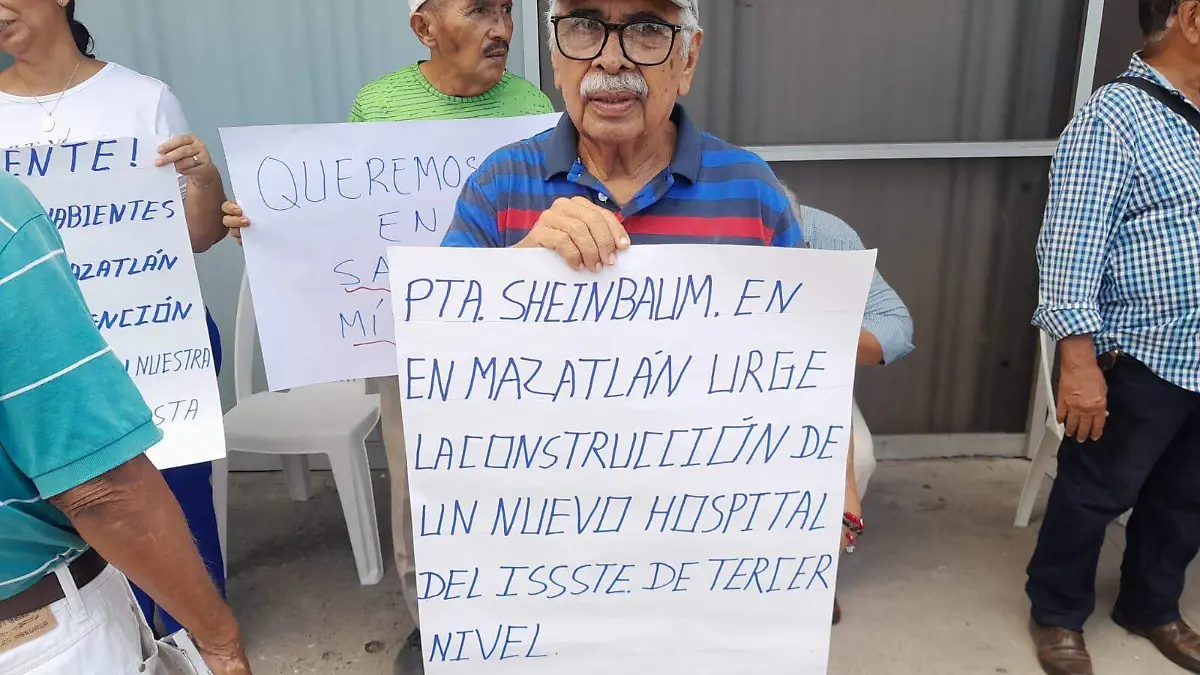 ENTE!
HABIENTES
AZATLÁN
ENCIÓN
NUESTRA
STA
QUEREMOS
EN
SA
MÍ
PTA. SHEINBAUM. EN
EN MAZATLÁN URGE
LA CONSTRUCCIÓN DE
UN NUEVO HOSPITAL
DEL ISSSTE. DE TERCER
NIVEL.